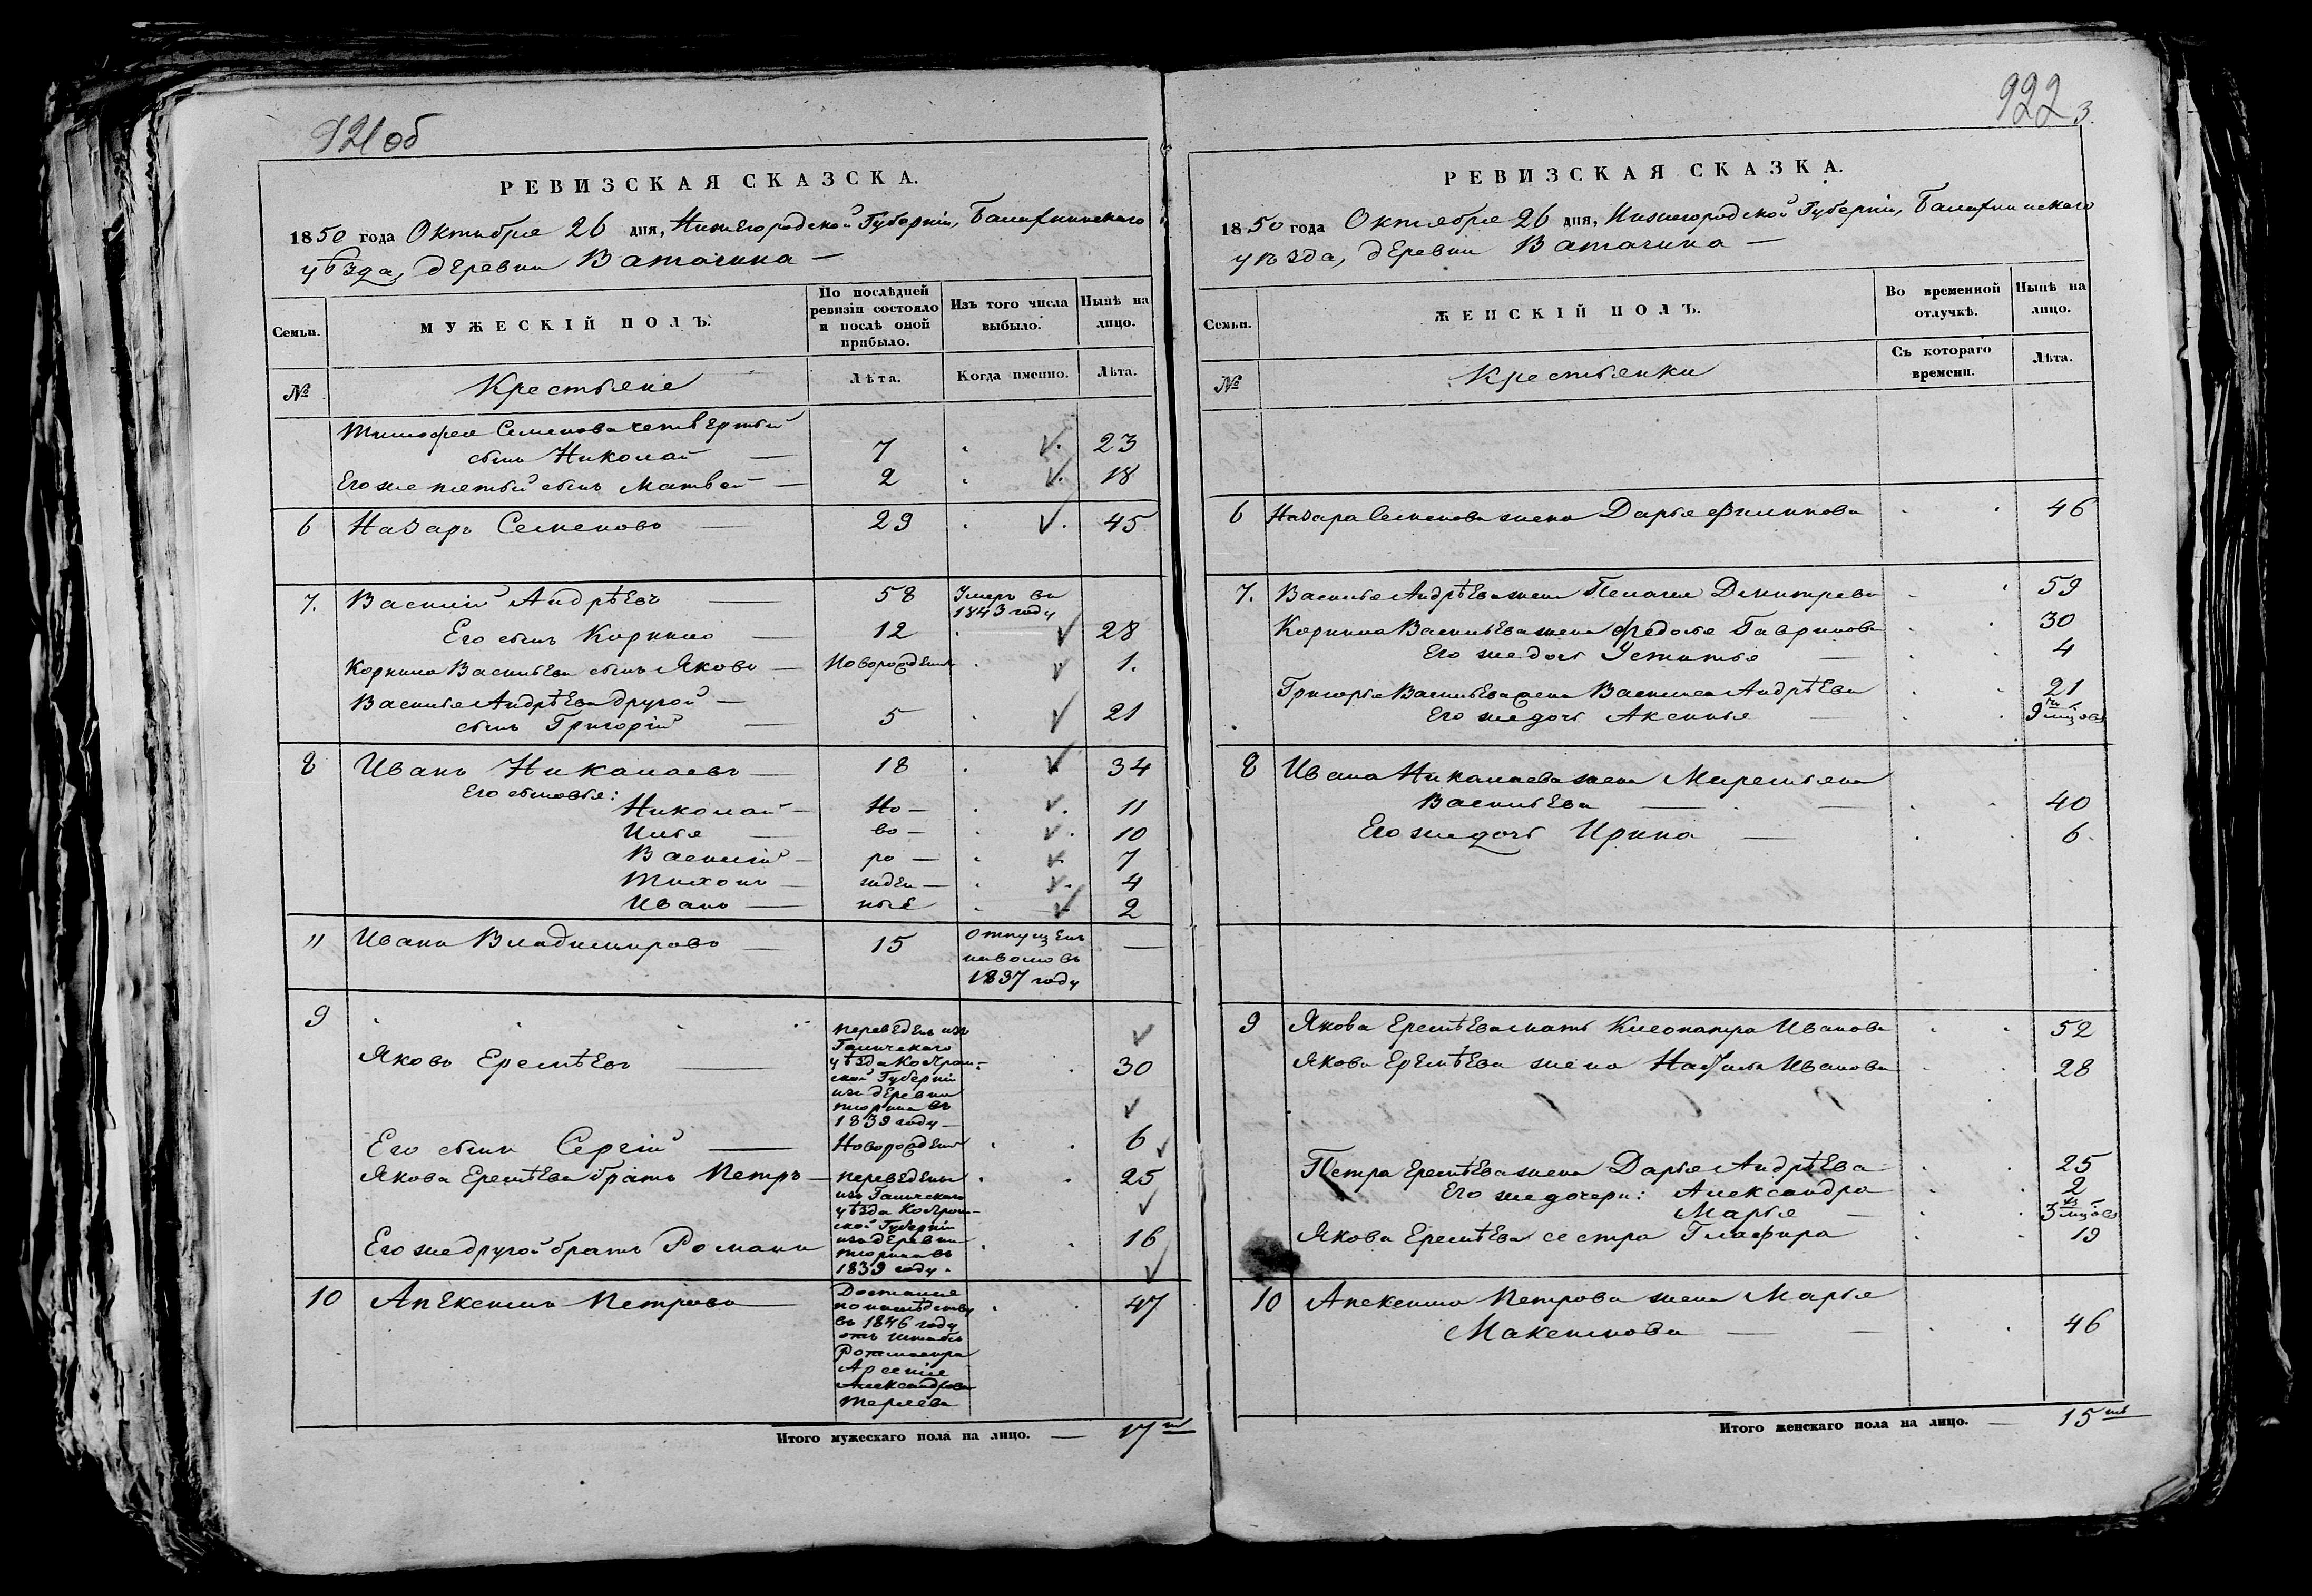 921об
РЕВИЗСКАЯ СКАЗСКА.
1850 года Октября 26 дня, Нижегородской Губерніи, Балахнинскаго
уѣзда, деревни Ватагина —
Семьи.
МУЖЕСКІЙ ПОЛЪ.
По послѣдней
ревизіи состояло
и послѣ оной
прибыло.
Изъ того числа
выбыло.
Нынѣ на
лицо.
№
Крестьяне
Лѣта.
Когда именно.
Лѣта.
Тимофея Семенова четвертый
сынъ Николай — 7 23
Его же пятый сынъ Матвей — 2 18
6 Назаръ Семеновъ — 29 45
7. Василий Андрѣевъ — 58 Умеръ въ
1843 году
Его сынъ Корнило — 12 28
Корнила Васильева сынъ Яковъ — Новорожденъ 1.
Василья Андрѣева другой —
сынъ Григорій — 5 21
8 Иванъ Никалаевъ — 18 34
Его сыновья:
Николай — Но — 11
Илья — во — 10
Василій — ро — 7
Тихонъ — жден — 4
Иванъ — ные 2
" Иванъ Владимировъ — 15 Отпущенъ
на волю въ
1837 году
—
9
Яковъ Еремѣевъ —
переведенъ изъ
Галичскаго
уѣзда Костром-
ской Губерніи
изъ деревни
въ
1839 году —
30
Его сынъ Сергій — Новорожденъ 6
Якова Еремѣева братъ Петръ — переведены 25
изъ Галичскаго
уѣзда Костром-
ской Губерніи
изъ деревни
Его же другой братъ Романъ 16
въ
1839 году.
10 Алексѣй Петровъ — 47
Достался
по наслѣдству
въ 1846 году
отъ Штабсъ
Ротмистра
Арсенія
Александрова
Итого мужескаго пола на лицо. — 17
922
3.
РЕВИЗСКАЯ СКАЗКА.
1850 года Октября 26 дня, Нижегородской Губерніи, Балахнинскаго
уѣзда, деревни Ватагина —
Семьи.
ЖЕНСКІЙ ПОЛЪ.
Во временной
отлучкѣ.
Нынѣ на
лицо.
№
Крестьянки
Съ котораго
времени.
Лѣта.
6 Назара Семенова жена Дарья Филипова 46
7. Василья Андрѣева жена Пелагея Дмитрева 59
Корнила Васильева жена Федосья Гаврилова 30
Его же дочь Устинья — 4
Григорья Васильева жена Василиса Андрѣева 21
Его же дочь Аксинья — 9 мцовъ
8 Ивана Никалаева жена Маремьяна
Васильева — 40
Его же дочь Ирина — 6.
9 Якова Еремѣева мать Клеопатра Иванова 52
Якова Еремѣева жена Иванова 28
Петра Еремѣева жена Дарья Андрѣева 25
Его же дочери: Александра 2
Марья — 3 мцовъ
Якова Еремѣева сестра Глафира 19
10 Алексѣя Петрова жена Марья
Максимова — 46
Итого женскаго пола на лицо. — 15